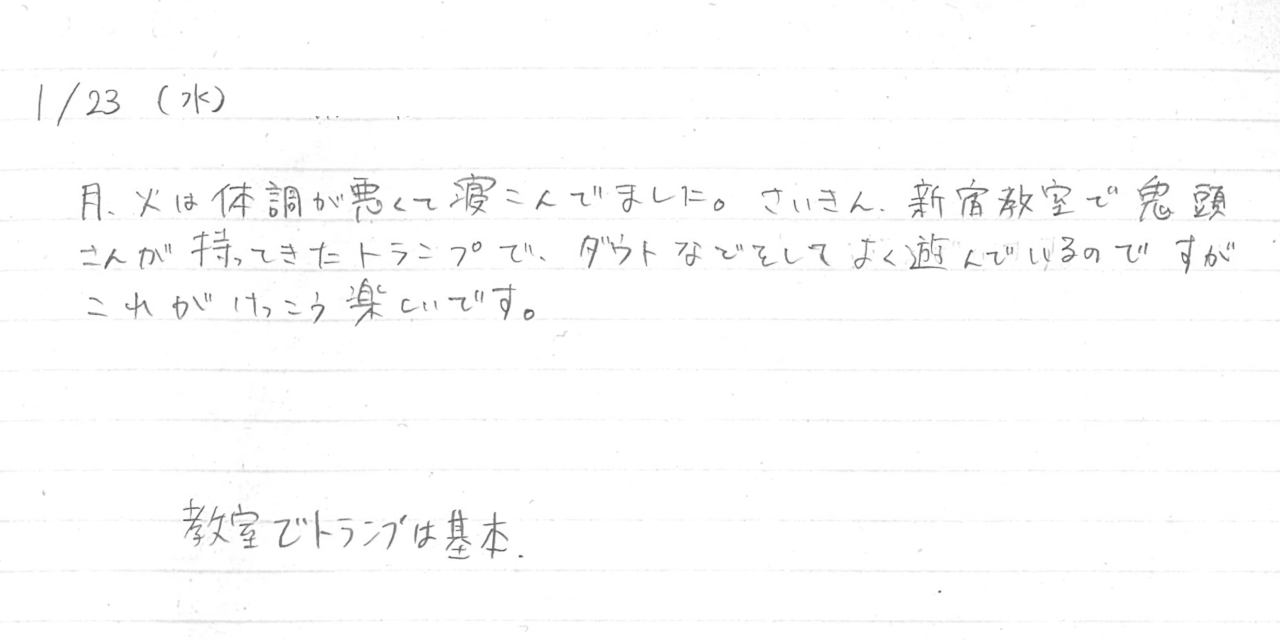 1/23 (水)
月、火は体調が悪くて寝こんでました。さいきん、新宿教室で鬼頭
さんが持ってきたトランプで、ダウトなどをしてよく遊んでいるのですが
これがけっこう楽しいです。
教室でトランプは基本.